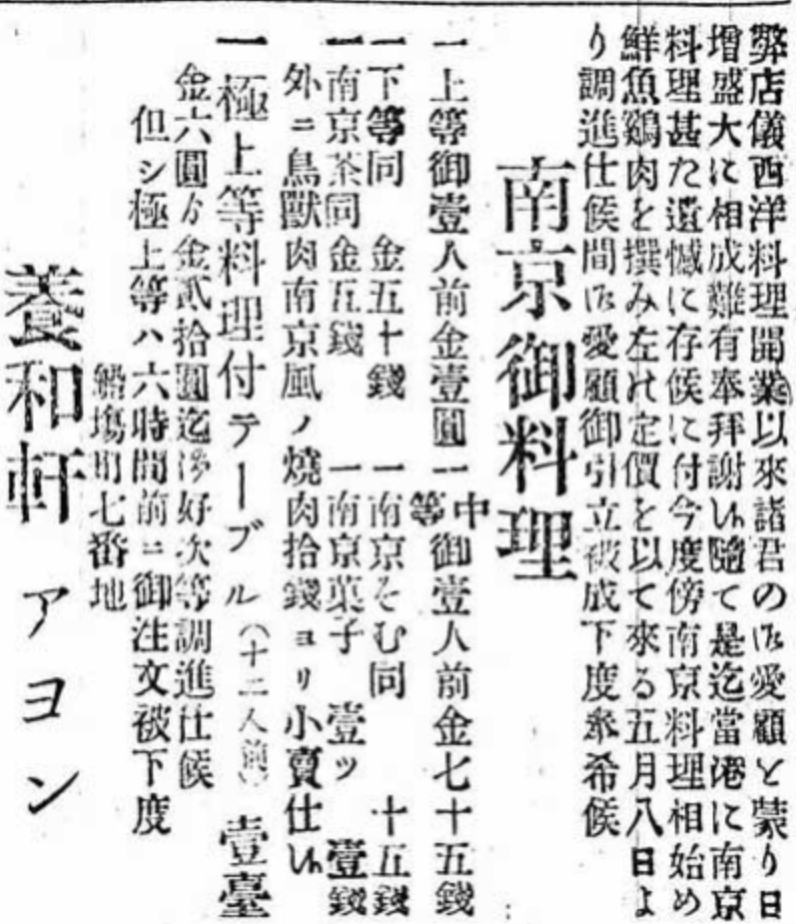 弊店儀西洋料理開業以來諸君の御愛顧を蒙り日
増盛大に相成難有奉拜謝候隨て是迄當港に南京
料理甚た遺憾に存候に付今度傍南京料理相始め
鮮魚鷄肉を撰み左の定價を以て來る五月八日よ
り調進仕候間御愛顧御引立被成下度奉希候
南京御料理
一上等御壹人前金壹圓一中等御壹人前金七十五錢
一下等同 金五十錢 一南京そむ同 十五錢
一南京茶同金五錢 一南京菓子 壹ツ 壹錢
外ニ鳥獸肉南京風ノ燒肉拾錢ヨリ小賣仕候
一極上等料理付テーブル(十二人前) 壹臺
金六圓ゟ金貳拾圓迄御好次等調進仕候
但シ極上等ハ六時間前ニ御注文被下度
船塲町七番地
養和軒 アヨン